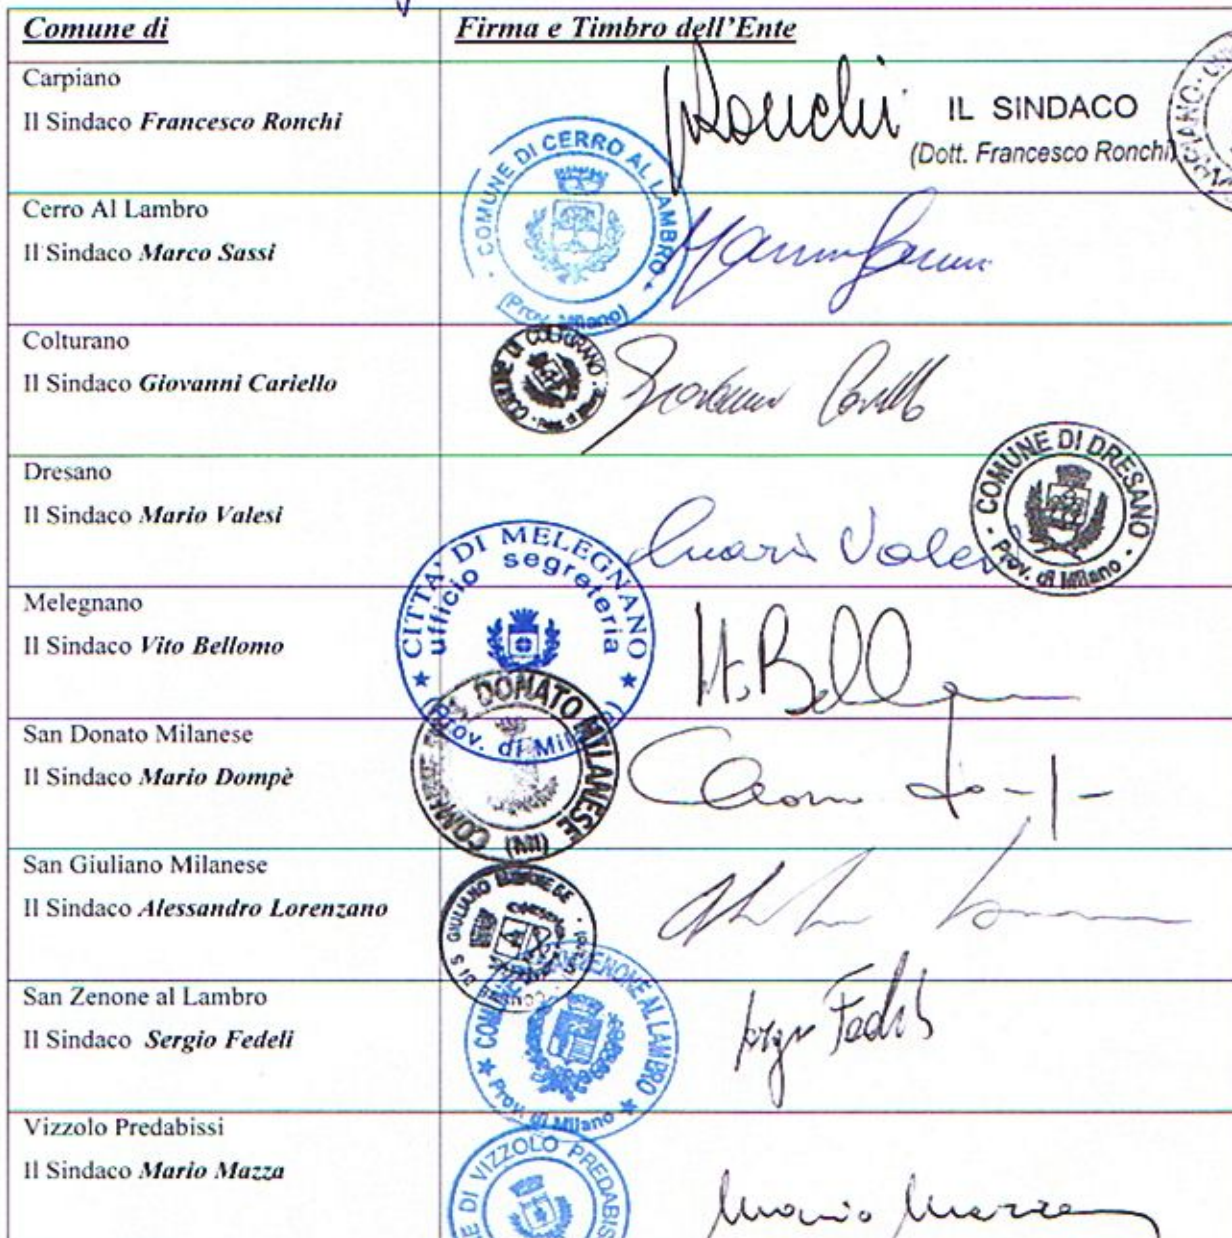 Comune di
Firma e Timbro dell'Ente
Carpiano
Il Sindaco Francesco Ronchi
Ronchi
IL SINDACO
(Dott. Francesco Ronchi)
Cerro Al Lambro
Il Sindaco Marco Sassi
COMUNE DI CERRO AL LAMBRO
(Prov. Milano)
Colturano
Il Sindaco Giovanni Cariello
COMUNE DI COLTURANO
Giovanni
Dresano
Il Sindaco Mario Valesi
Mario Valesi
COMUNE DI DRESANO
Prov. di Milano
Melegnano
Il Sindaco Vito Bellomo
CITTA' DI MELEGNANO
ufficio segreteria
(Prov. di Mil
San Donato Milanese
Il Sindaco Mario Dompè
DONATO MILANESE
(MI)
San Giuliano Milanese
Il Sindaco Alessandro Lorenzano
DI S GIULIANO
San Zenone al Lambro
Il Sindaco Sergio Fedeli
ZENONE AL LAMBRO
Prov. di Milano
Vizzolo Predabissi
Il Sindaco Mario Mazza
E DI VIZZOLO PREDABIS
Mario Mazza